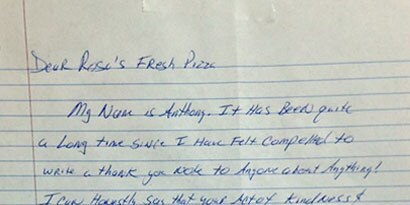 Dear Rosa's Fresh Pizza
My Name is Anthony. It Has Been quite
a Long time Since I Have Felt Compelled to
write a thank you Note to Anyone about Anything!
I Can Honestly Say that your Act of Kindness &